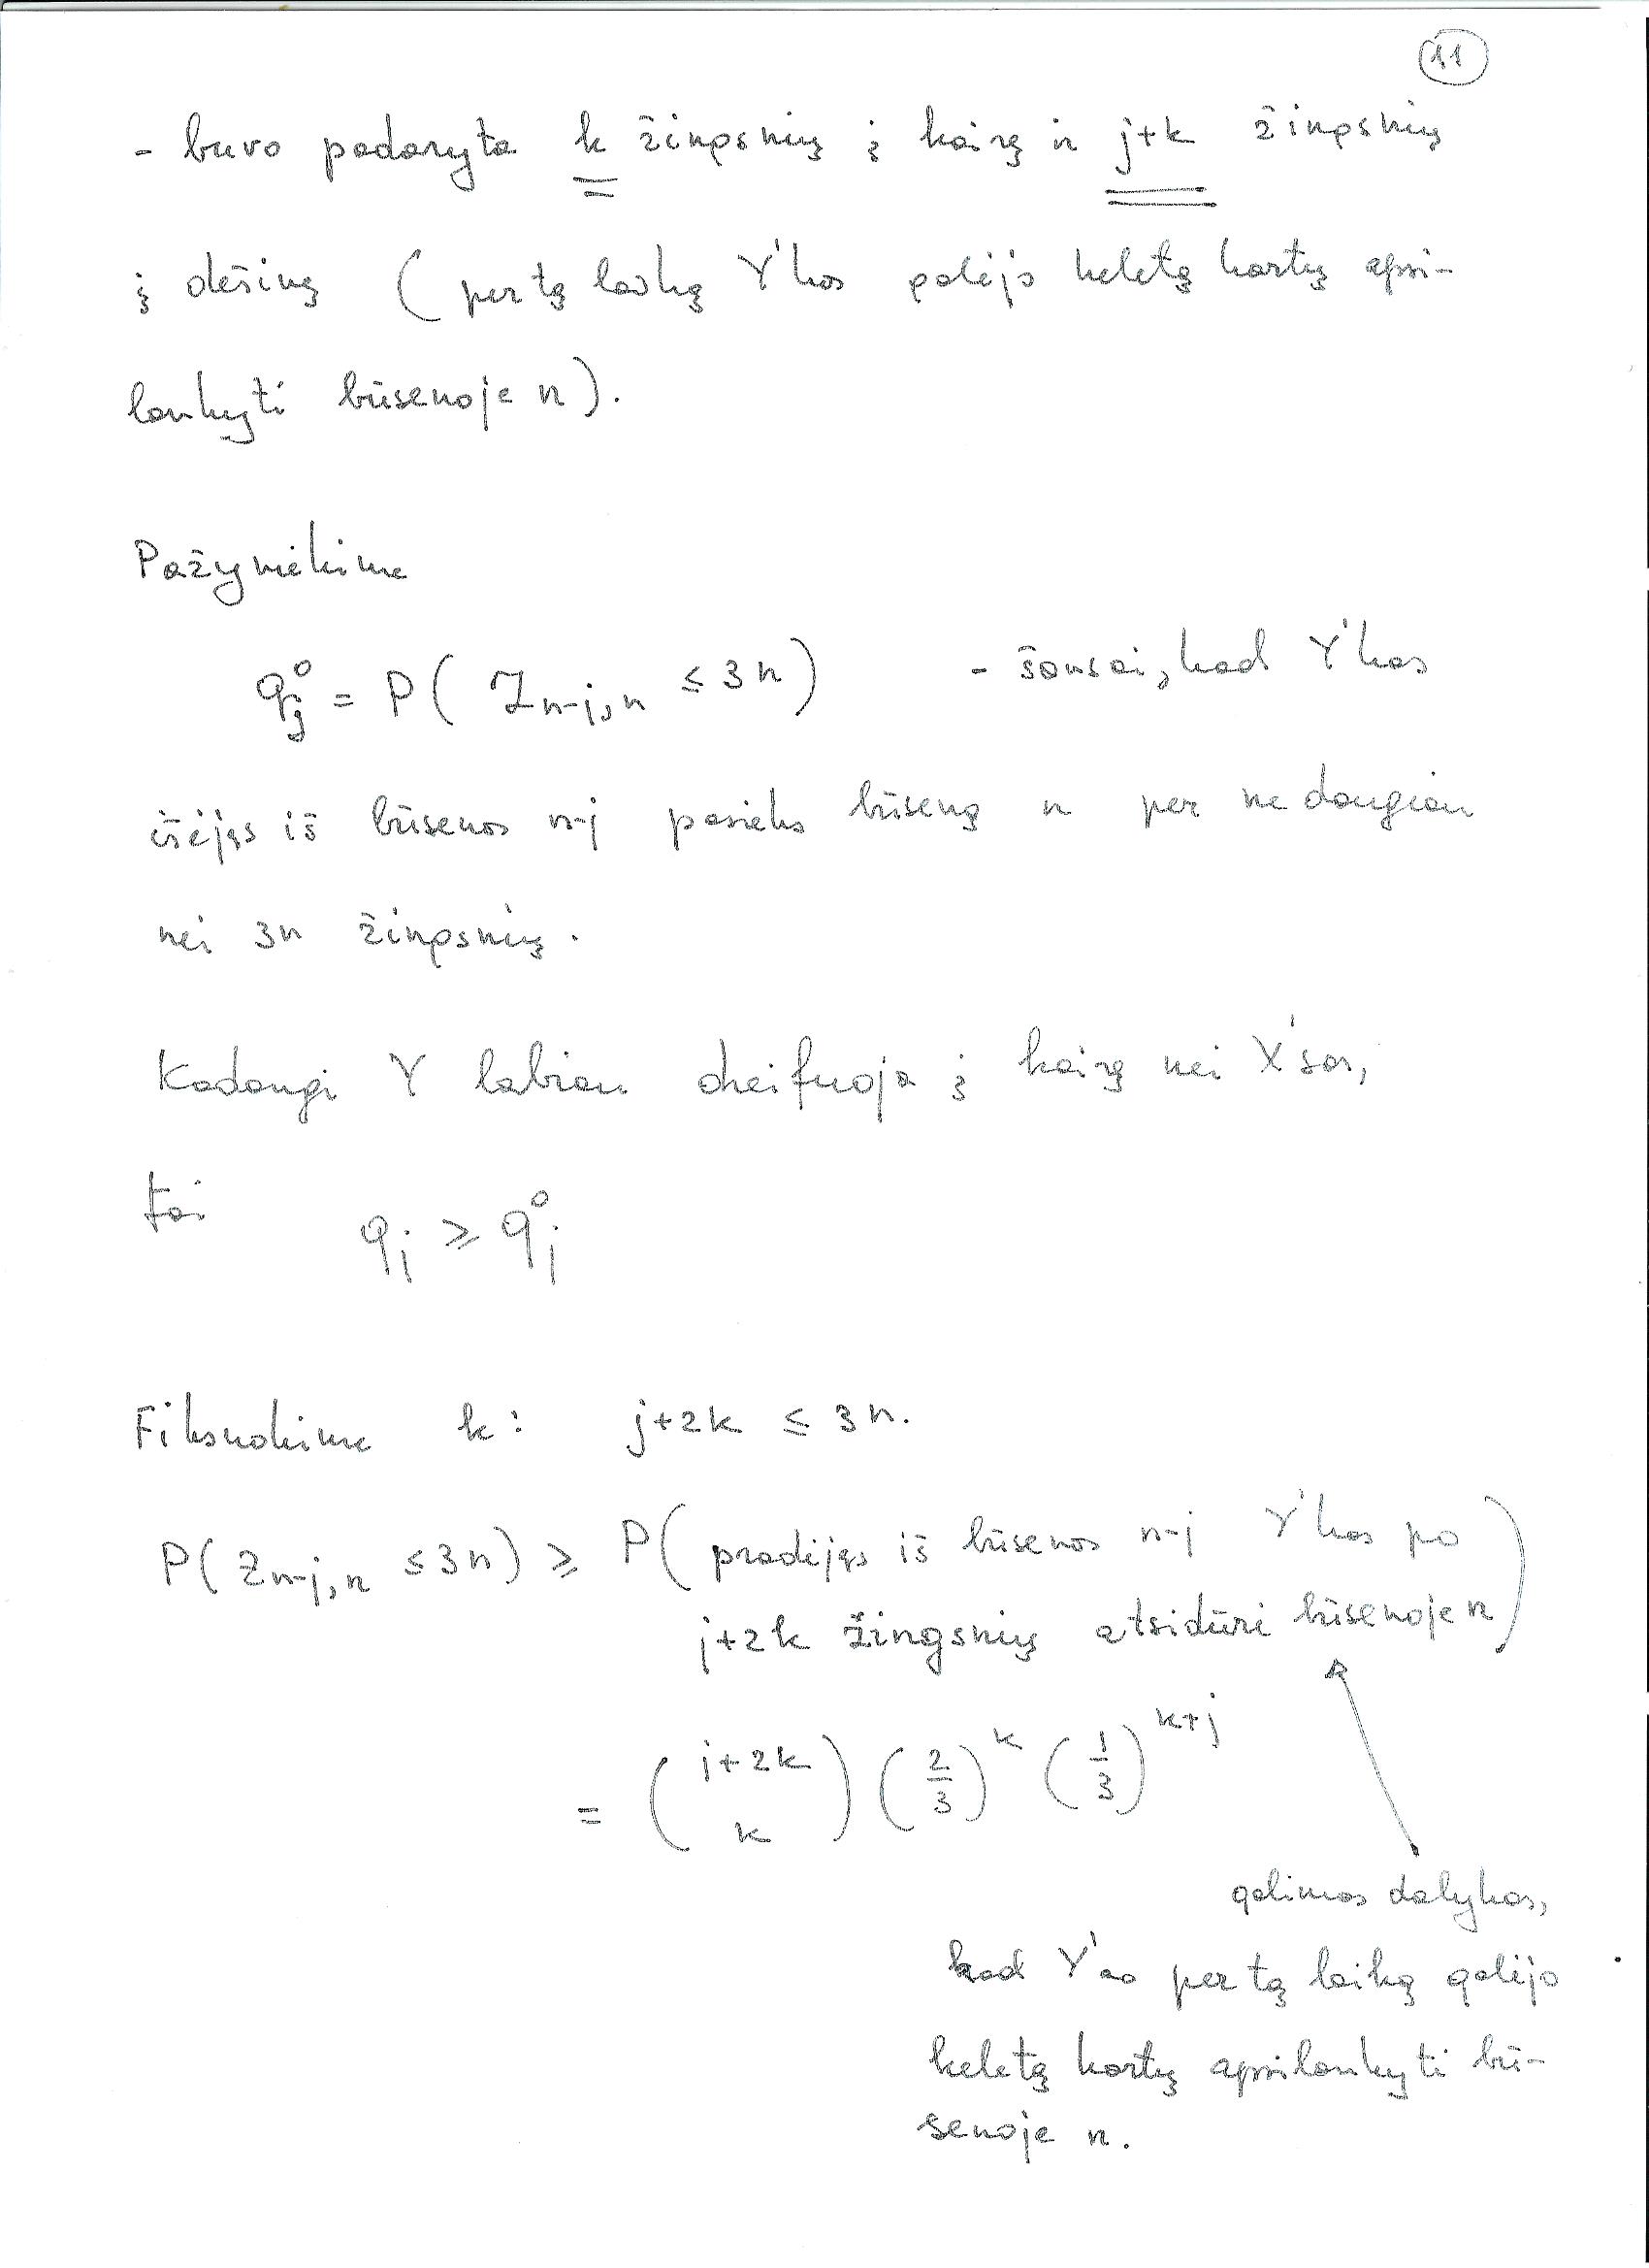 11
- buvo padaryta k žingsnių į kairę ir j+k žingsnių
į dešinę ( per tą laiką Y'kas galėjo keletą kartų apsi-
lankyti būsenoje n ).
Pažymėkime
q_j^0 = P( Z_{n-j,n} ≤ 3n ) - šansai, kad Y'kas
išėjęs iš būsenos n-j pasieks būseną n per ne daugiau
nei 3n žingsnių.
Kadangi Y labiau dreifuoja į kairę nei X'sas,
tai q_j ≥ q_j^0
Fiksuokime k: j+2k ≤ 3n.
P( Z_{n-j,n} ≤ 3n ) ≥ P( pradėjęs iš būsenos n-j Y'kas po
j+2k žingsnių atsidūrė būsenoje n )
= ( j+2k k ) ( 2/3 )^k ( 1/3 )^{k+j}
galimas dalykas,
kad Y'as per tą laiką galėjo
keletą kartų apsilankyti bū-
senoje n.